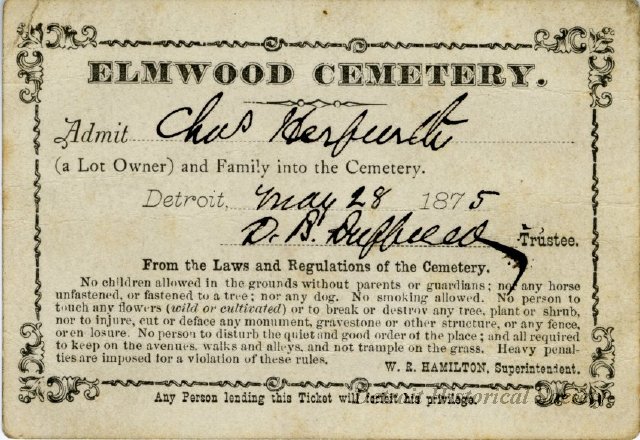 ELMWOOD CEMETERY.
Admit Chas Herpurth
(a Lot Owner) and Family into the Cemetery.
Detroit, May 28 1875
D. B. Duffield Trustee.
From the Laws and Regulations of the Cemetery.
No children allowed in the grounds without parents or guardians; nor any horse
unfastened, or fastened to a tree; nor any dog. No smoking allowed. No person to
touch any flowers (wild or cultivated) or to break or destroy any tree, plant or shrub,
nor to injure, cut or deface any monument, gravestone or other structure, or any fence,
or en losure. No person to disturb the quiet and good order of the place; and all required
to keep on the avenues, walks and alleys, and not trample on the grass. Heavy penal-
ties are imposed for a violation of these rules.
W. R. HAMILTON, Superintendent.
Any Person lending this Ticket will forfeit his privilege.
Historical